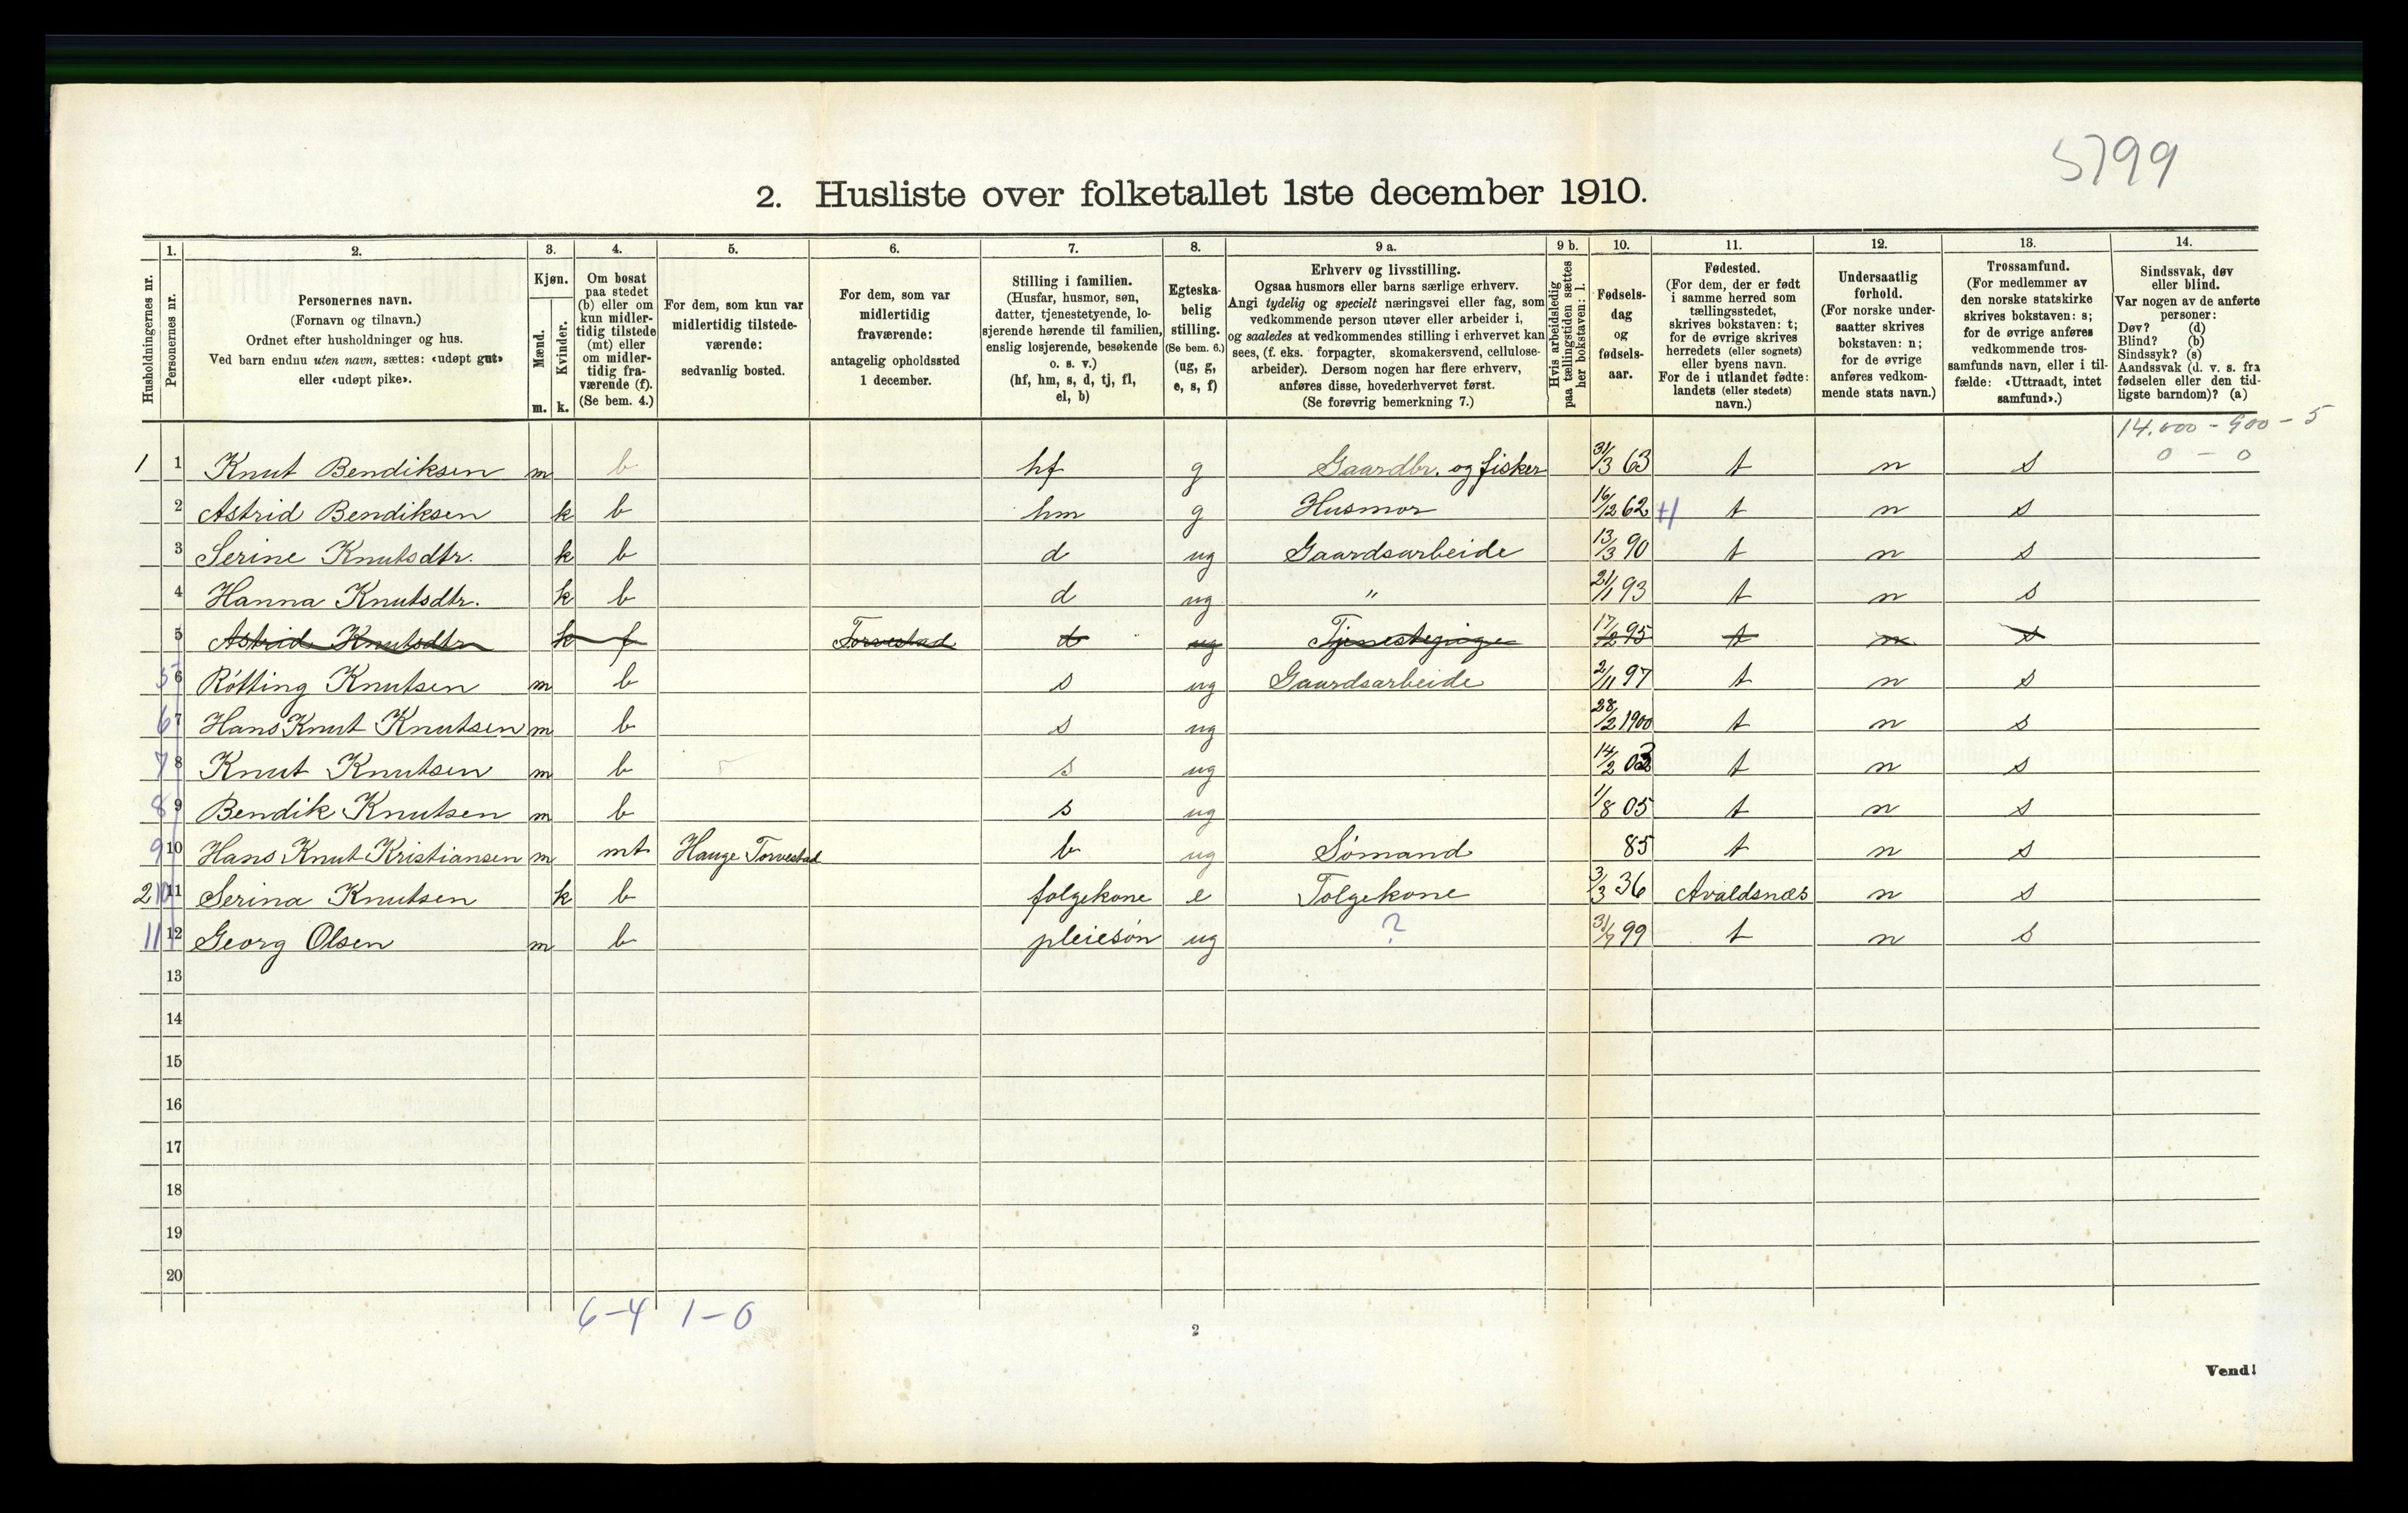 5799
2. Husliste over folketallet 1ste december 1910.
Husholdningernes nr.
1.
Personernes nr.
2.
Personernes navn.
(Fornavn og tilnavn.)
Ordnet efter husholdninger og hus.
Ved barn endnu uten navn, sættes: «udøpt gut»
eller «udøpt pike».
3.
Kjøn.
Mænd.
Kvinder.
m. k.
4.
Om bosat
paa stedet
(b) eller om
kun midler-
tidig tilstede
(mt) eller
om midler-
tidig fra-
værende (f).
(Se bem. 4.)
5.
For dem, som kun var
midlertidig tilstede-
værende:
sedvanlig bosted.
6.
For dem, som var
midlertidig
fraværende:
antagelig opholdssted
1 december.
7.
Stilling i familien.
(Husfar, husmor, søn,
datter, tjenestetyende, lo-
sjerende hørende til familien,
enslig losjerende, besøkende
o. s. v.)
(hf, hm, s, d, tj, fl,
el, b)
8.
Egteska-
belig
stilling.
(Se bem. 6.)
(ug, g,
e, s, f)
9 a.
Erhverv og livsstilling.
Ogsaa husmors eller barns særlige erhverv.
Angi tydelig og specielt næringsvei eller fag, som
vedkommende person utøver eller arbeider i,
og saaledes at vedkommendes stilling i erhvervet kan
sees, (f. eks. forpagter, skomakersvend, cellulose-
arbeider). Dersom nogen har flere erhverv,
anføres disse, hovederhvervet først.
(Se forøvrig bemerkning 7.)
9 b.
Hvis arbeidsledig
paa tællingstiden sættes
her bokstaven: l.
10.
Fødsels-
dag
og
fødsels-
aar.
11.
Fødested.
(For dem, der er født
i samme herred som
tællingsstedet,
skrives bokstaven: t;
for de øvrige skrives
herredets (eller sognets)
eller byens navn.
For de i utlandet fødte:
landets (eller stedets)
navn.)
12.
Undersaatlig
forhold.
(For norske under-
saatter skrives
bokstaven: n;
for de øvrige
anføres vedkom-
mende stats navn.)
13.
Trossamfund.
(For medlemmer av
den norske statskirke
skrives bokstaven: s;
for de øvrige anføres
vedkommende tros-
samfunds navn, eller i til-
fælde: «Uttraadt, intet
samfund».)
14.
Sindssvak, døv
eller blind.
Var nogen av de anførte
personer:
Døv? (d)
Blind? (b)
Sindssyk? (s)
Aandssvak (d. v. s. fra
fødselen eller den tid-
ligste barndom)? (a)
14.000 - 900 - 5
0 - 0
1 1 Knut Bendiksen m b hf g Gaardbr. og fisker 31/3 63 t n s
2 Astrid Bendiksen k b hm g Husmor 16/12 62 t n s
3 Serine Knutsdtr. k b d ug Gaardsarbeide 13/3 90 t n s
4 Hanna Knutsdtr. k b d ug " 21/1 93 t n s
5 Astrid Knutsdtr k f Torvestad d ug Tjenestepige 17/2 95 t n s
5 6 Røtting Knutsen m b s ug Gaardsarbeide 2/11 97 t n s
6 7 Hans Knut Knutsen m b s ug 28/2 1900 t n s
7 8 Knut Knutsen m b s ug 14/2 03 t n s
8 9 Bendik Knutsen m b s ug 1/8 05 t n s
9 10 Hans Knut Kristiansen m mt Hauge Torvestad b ug Sømand 85 t n s
2 10 11 Serina Knutsen k b folgekone e Folgekone 3/3 36 Avaldsnæs n s
11 12 Georg Olsen m b pleiesøn ug ? 31/7 99 t n s
13
14
15
16
17
18
19
20
6-4 1-0
2
Vend!